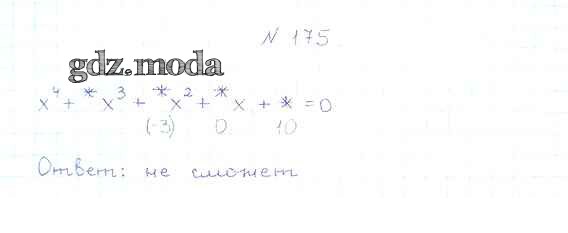 N 175
gdz.moda
x⁴ + *x³ + *x² + *x + * = 0
(-3) 0 10
Ответ: не сможет